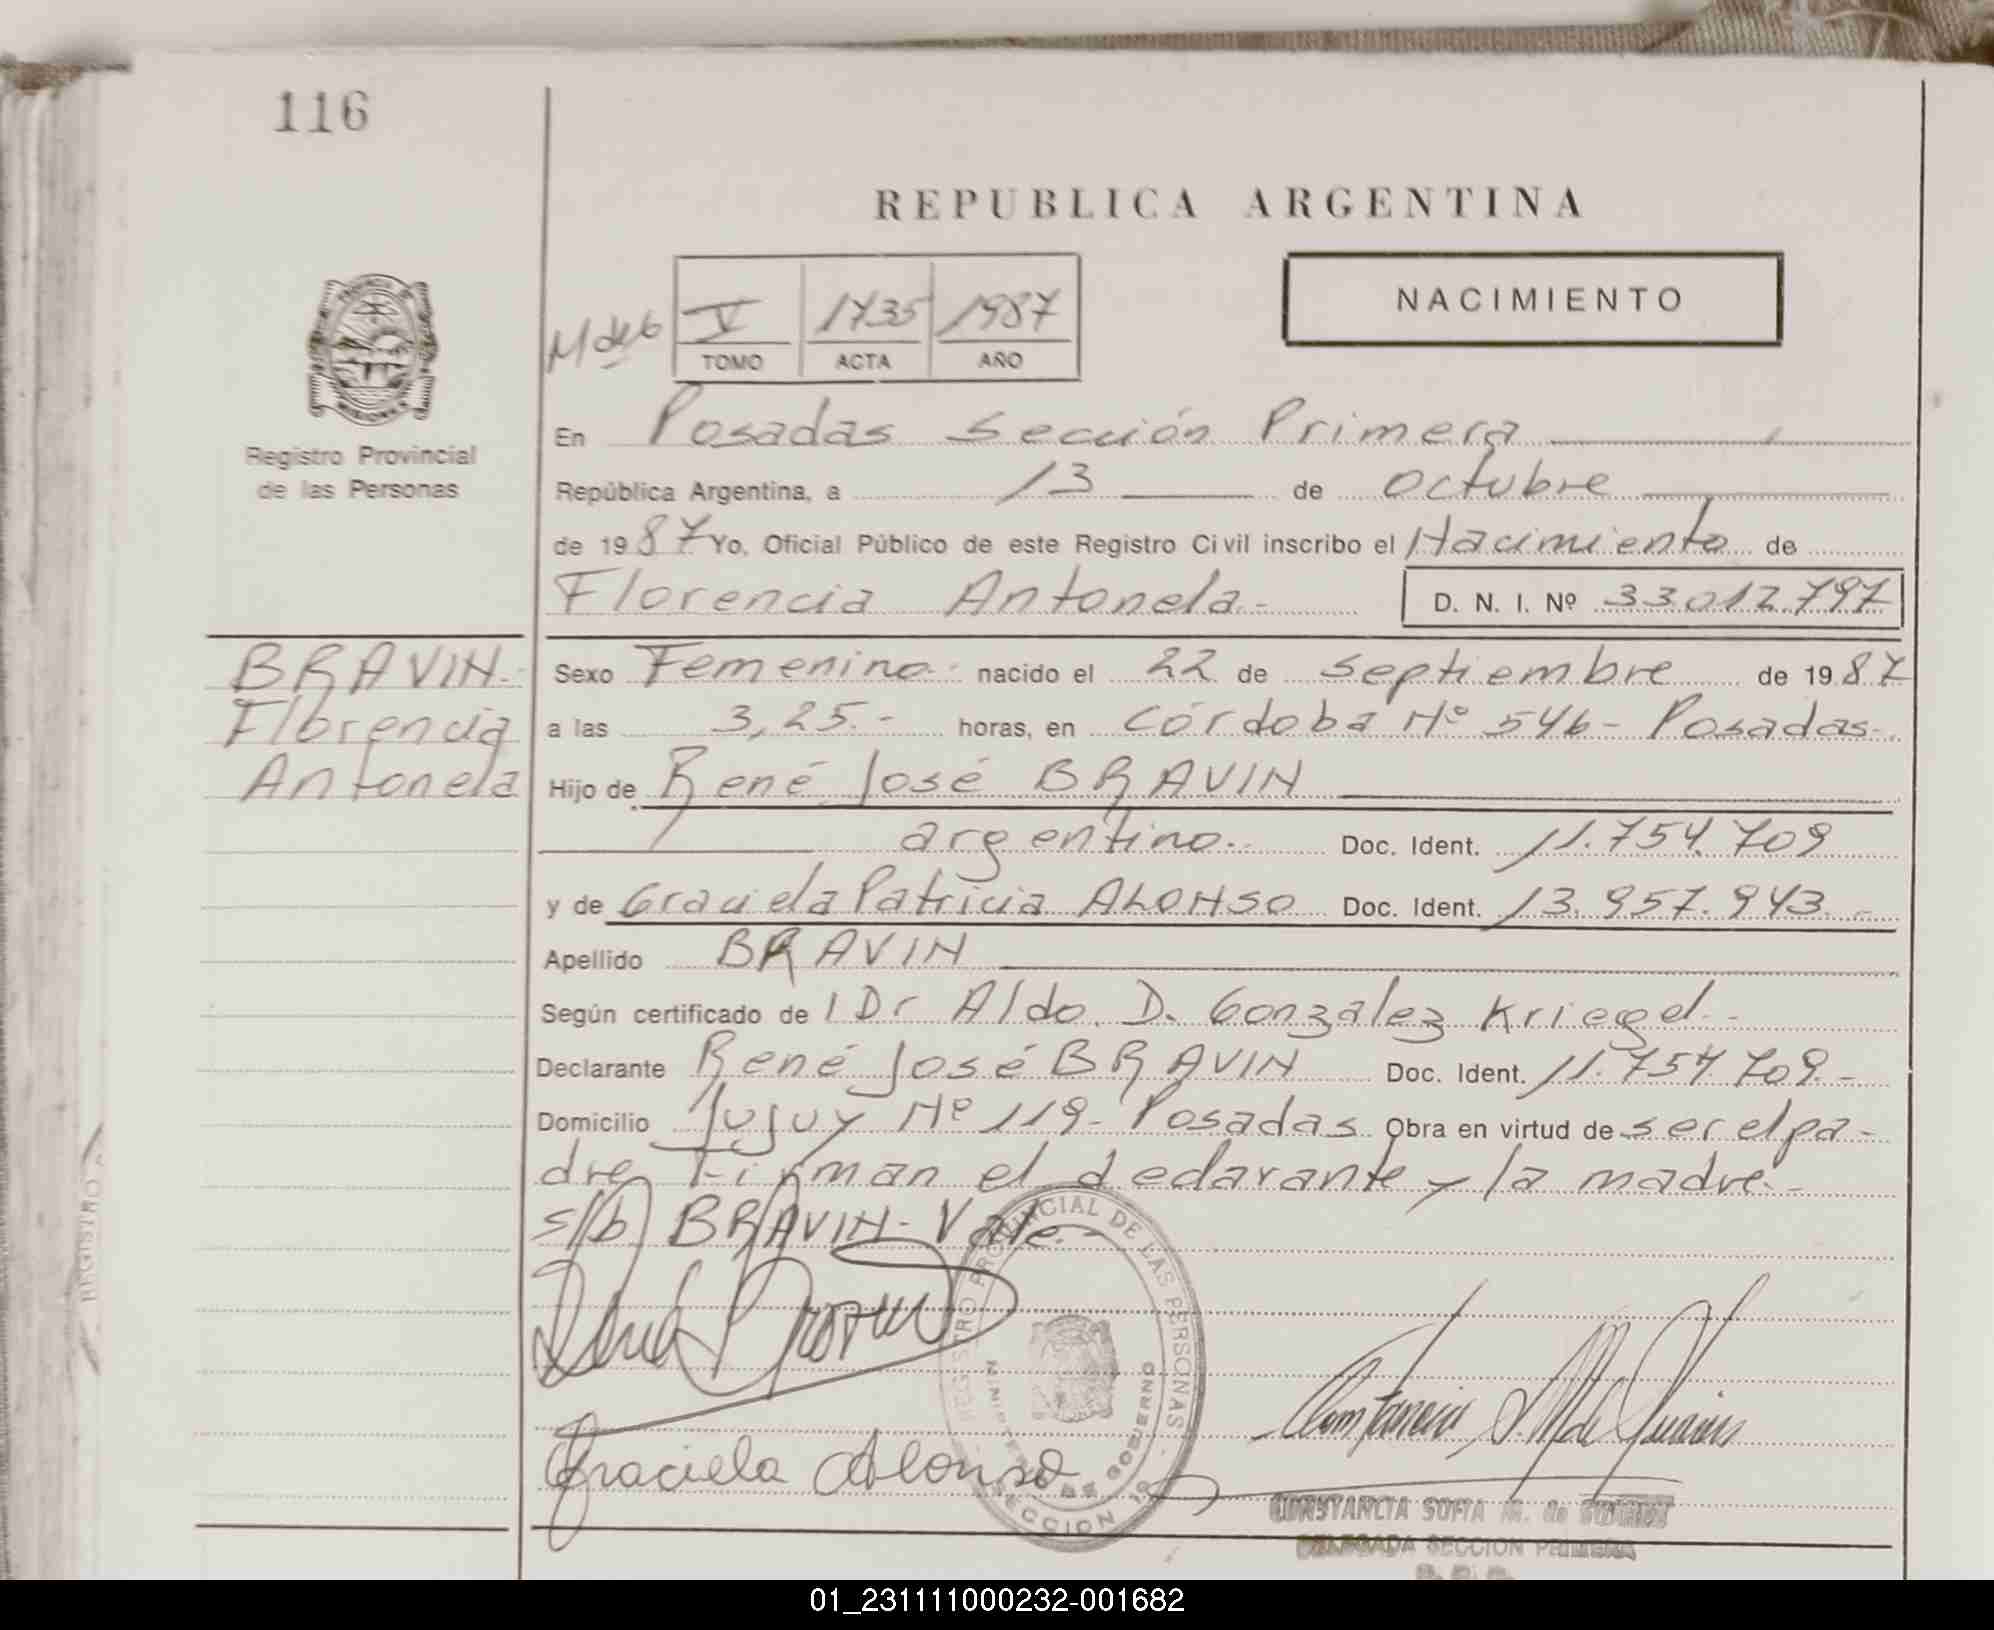 116
REPUBLICA ARGENTINA
NACIMIENTO
M de 6
V 1735 1987
TOMO ACTA AÑO
Registro Provincial
de las Personas
En Posadas Sección Primera
República Argentina, a 13 de Octubre
de 1987 Yo, Oficial Público de este Registro Civil inscribo el Nacimiento de
Florencia Antonela.- D. N. I. Nº 33.012.797
BRAVIN.-
Florencia
Antonela
Sexo Femenino.- nacido el 22 de Septiembre de 1987
a las 3,25.- horas, en Córdoba Nº 546- Posadas.-
Hijo de René José BRAVIN
argentino.- Doc. Ident. 11.754.709
y de Graciela Patricia ALONSO Doc. Ident. 13.957.943.-
Apellido BRAVIN
Según certificado de l Dr Aldo D. Gonzalez Kriegel.-
Declarante René José BRAVIN Doc. Ident. 11.754.709.-
Domicilio Jujuy Nº 119- Posadas Obra en virtud de ser el pa-
dre Firman el declarante y la madre.-
s/b) BRAVIN- Vale.-
René Bravin
Graciela Alonso
REGISTRO PROVINCIAL DE LAS PERSONAS
MINISTERIO DE GOBIERNO
SECCION 1ª
CONSTANCIA SOFIA M. de
DELEGADA SECCION PRIMERA
REGISTRO
01_231111000232-001682